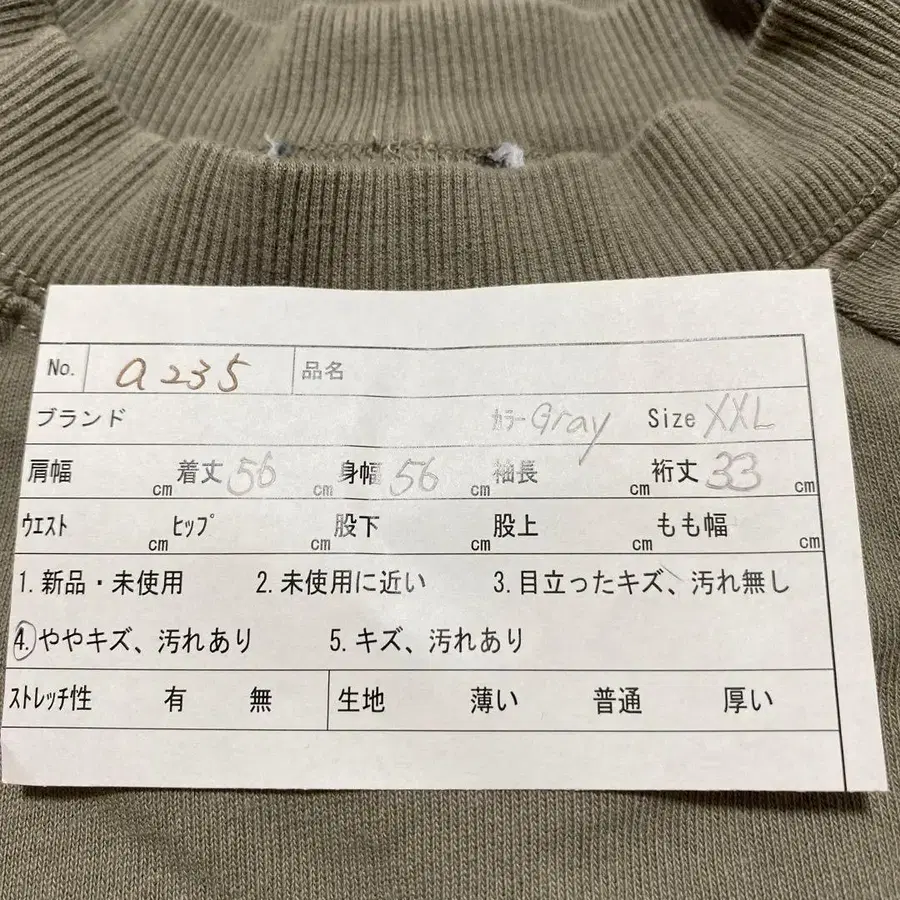 No. a235 品名
ブランド カラー Gray Size XXL
肩幅 cm 着丈 56 cm 身幅 56 cm 袖長 cm 裄丈 33 cm
ウエスト cm ヒップ cm 股下 cm 股上 cm もも幅 cm
1.新品・未使用 2.未使用に近い 3.目立ったキズ、汚れ無し
4.ややキズ、汚れあり 5.キズ、汚れあり
ストレッチ性 有 無 生地 薄い 普通 厚い